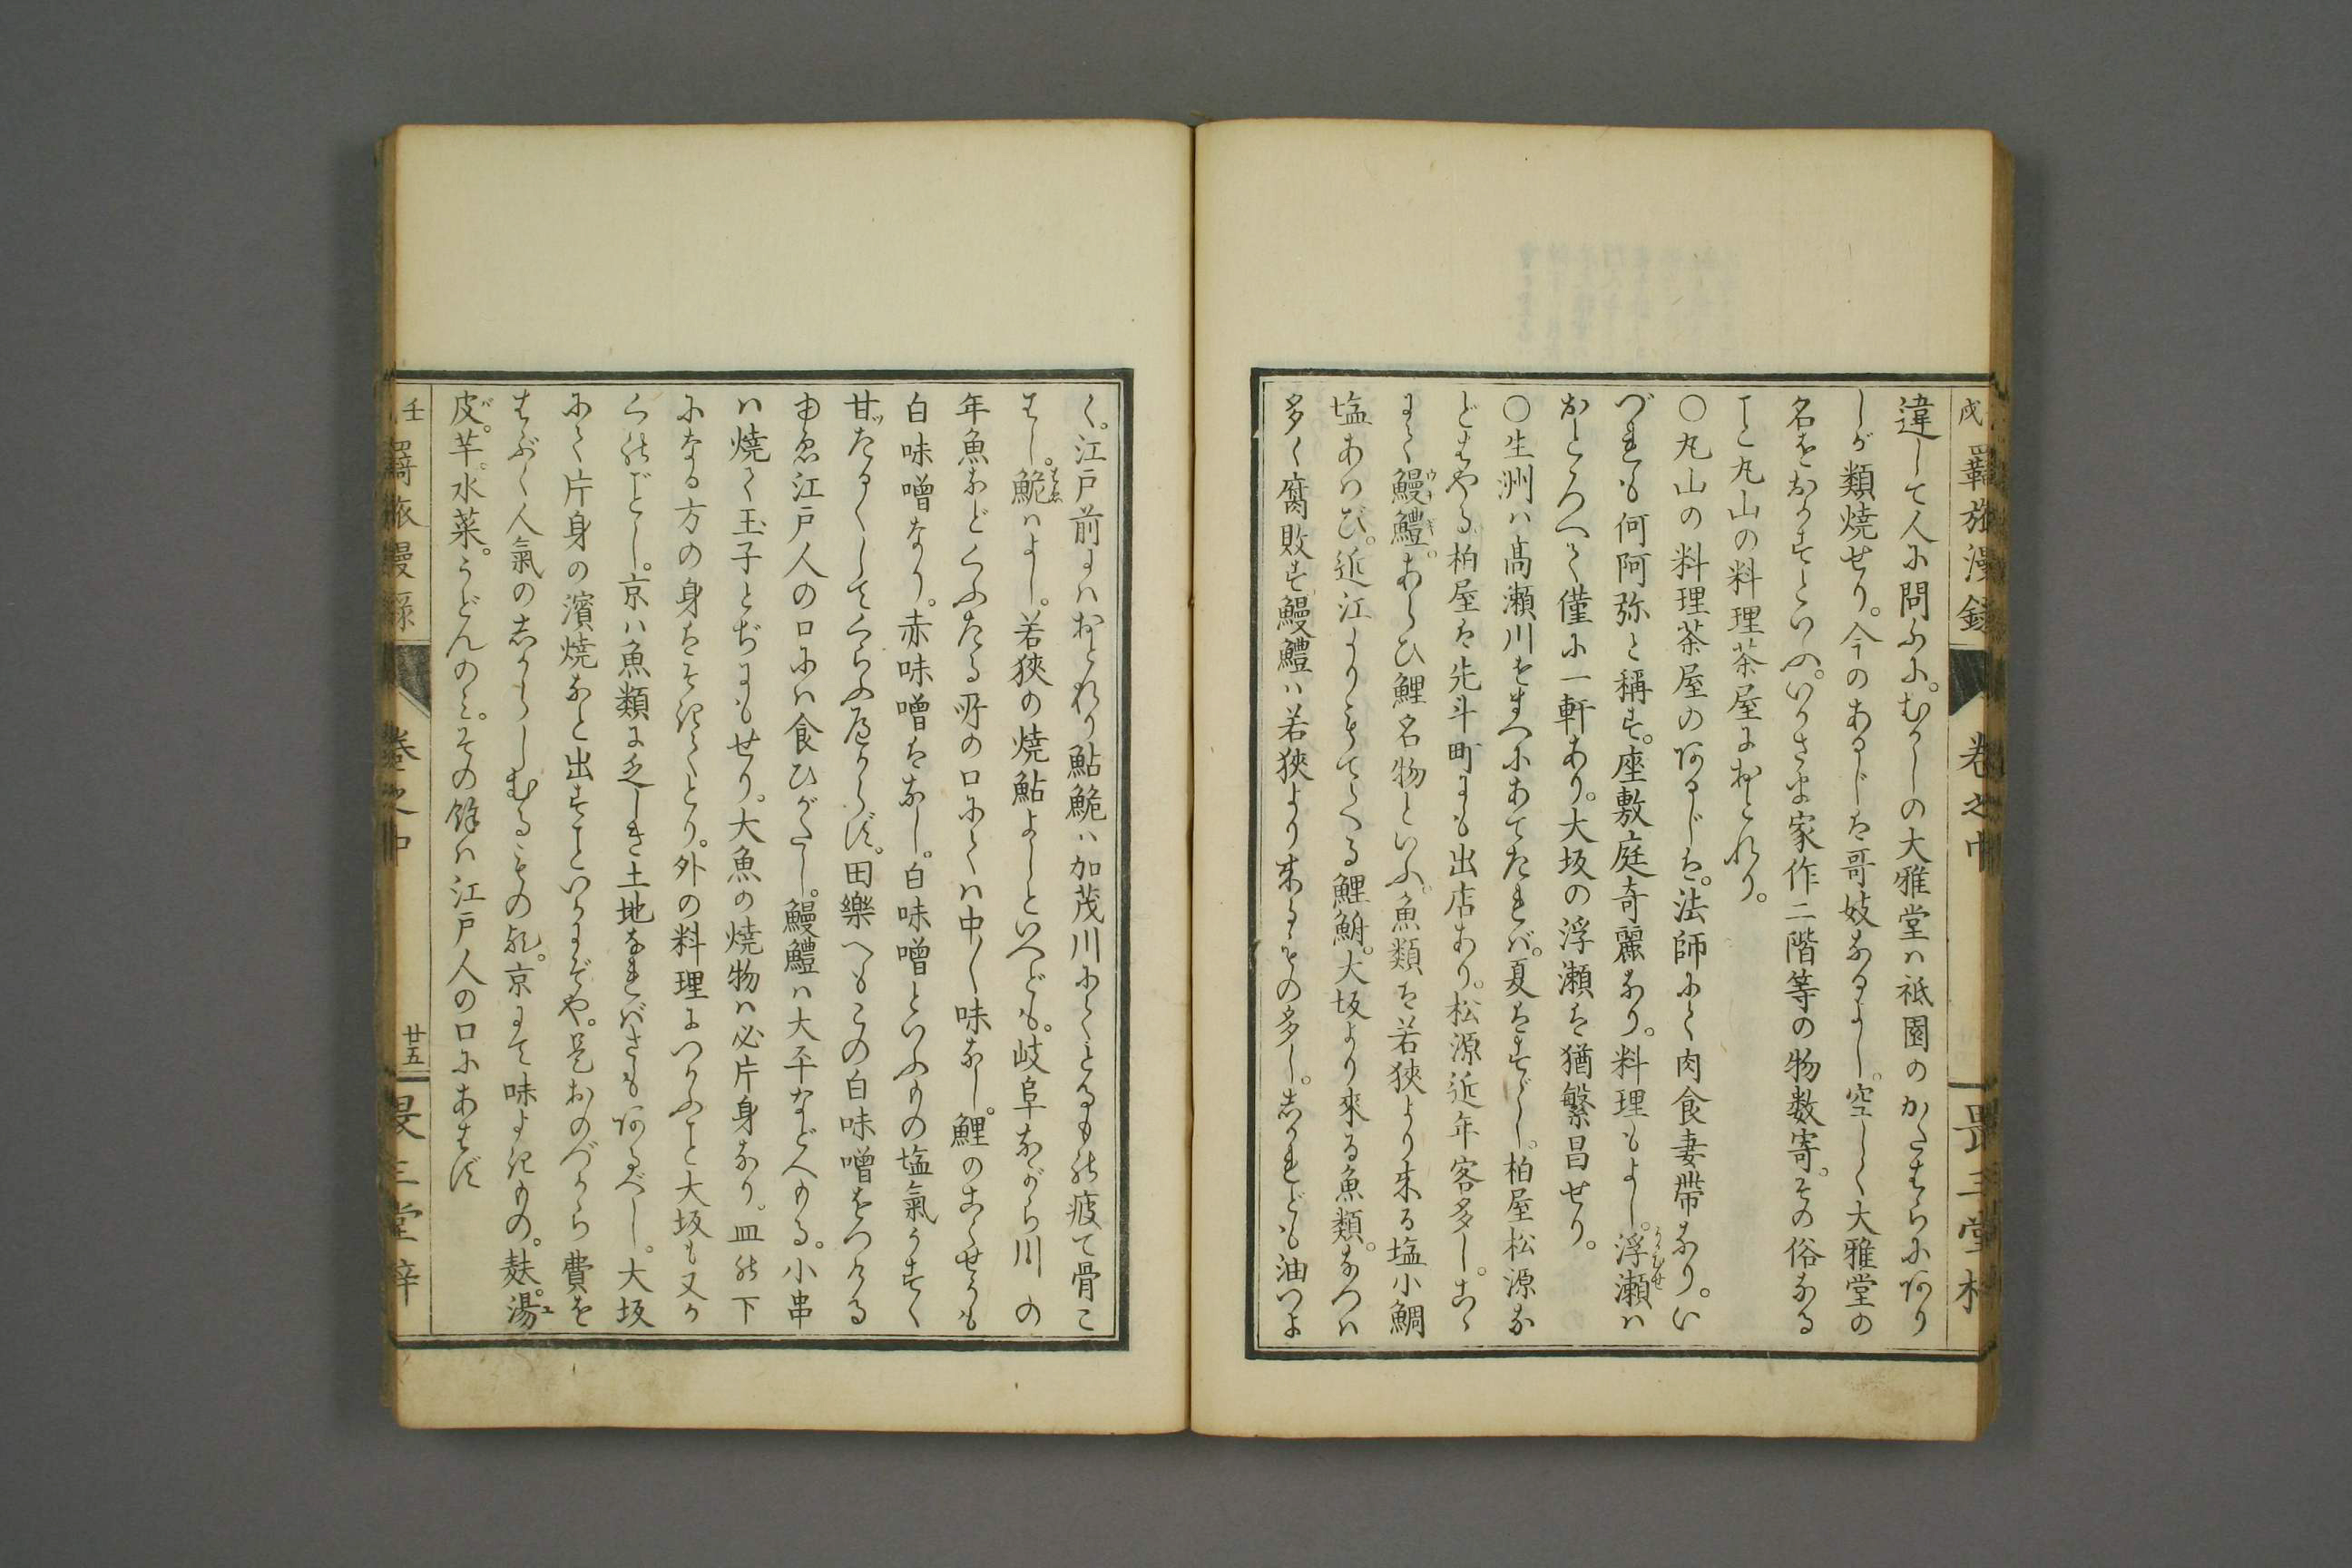 違して人に問ふに。むかしの大雅堂は祇園のかたはらにあり
しが類焼せり。今のあるじは哥妓なるよし。空しく大雅堂の
名をおかすといふ。いかさま家作二階等の物数寄。その俗なる
こと丸山の料理茶屋におとれり。
〇丸山の料理茶屋のあるじは。法師にて肉食妻帯なり。い
づれも何阿弥と称す。座敷庭奇麗なり。料理もよし。浮瀬は
おとろへて僅に一軒あり。大坂の浮瀬は猶繁昌せり。
〇生洲は高瀬川をまへにあてたれば。夏はすゞし。柏屋松源な
どはやる。柏屋は先斗町にも出店あり。松源近年客多し。こゝ
にて鰻鱧。あらひ鯉名物といふ。魚類は若狭より来る塩小鯛
塩あはび。近江よりもてくる鯉鮒。大坂より来る魚類。なつは
多く腐敗す鰻鱧は若狭より来るもの多し。しかれども油つよ
戌 羇旅漫録 巻之中 畏三堂梓
く。江戸前にはおとれり鮎鮠は加茂川にてとるもの疲て骨こ
はし。鮠はよし。若狭の焼鮎よしといへども。岐阜ながら川の
年魚などくふたる所の口にては中〳〵味なし。鯉のこくせうも
白味噌なり。赤味噌はなし。白味噌といふもの塩気うすく
甘ッたるくしてくらふべからず。田楽へもこの白味噌をつける
ゆゑ江戸人の口には食ひがたし。鰻鱧は大平などへもる。小串
は焼て玉子とぢにもせり。大魚の焼物は必片身なり。皿の下
になる方の身をそぎてとり。外の料理につかふこと大坂も又か
くのごとし。京は魚類に乏しき土地なればさもあるべし。大坂
にて片身の濱焼など出すこといかにぞや。是おのづから費を
はぶく人気のしからしむるもの歟。京にて味よきもの。麸。湯
皮。芋。水菜。うどんのみ。その余は江戸人の口にあはず
壬 羇旅漫録 巻之中 廿五 畏三堂梓